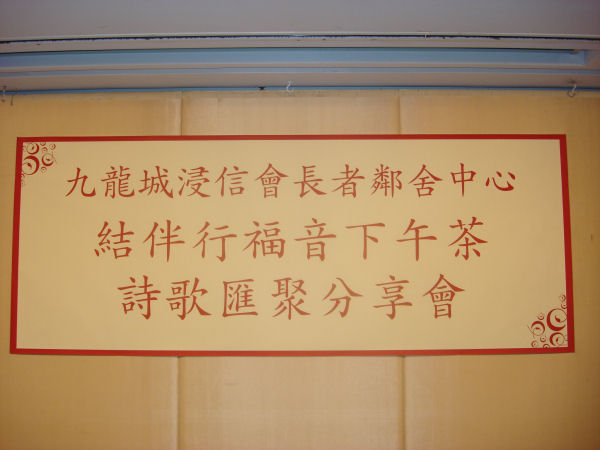 九龍城浸信會長者鄰舍中心
結伴行福音下午茶
詩歌匯聚分享會